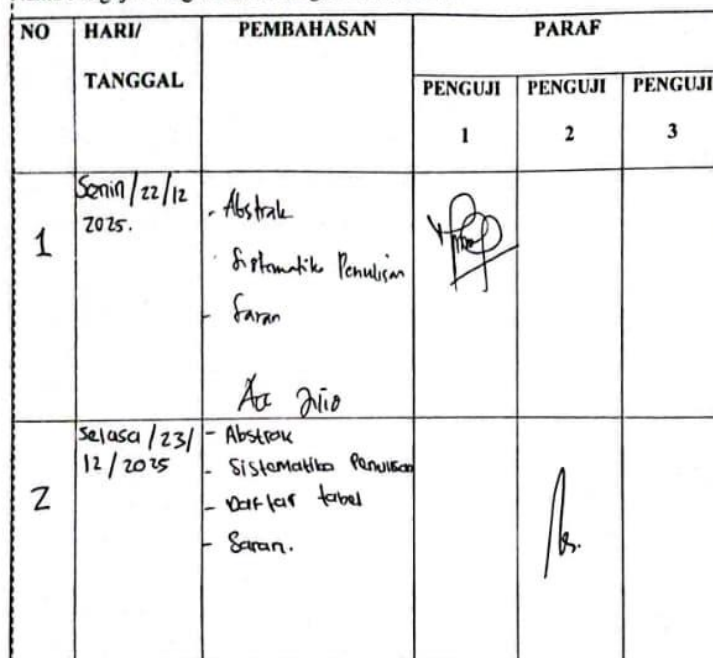 NO HARI/ PEMBAHASAN PARAF
TANGGAL
PENGUJI PENGUJI PENGUJI
1 2 3
1
Senin/22/12
2025.
- Abstrak
- Sistematika Penulisan
- Saran
Acc
2
Selasa/23/
12/2025
- Abstrak
- Sistematika Penulisan
- Daftar tabel
- Saran.